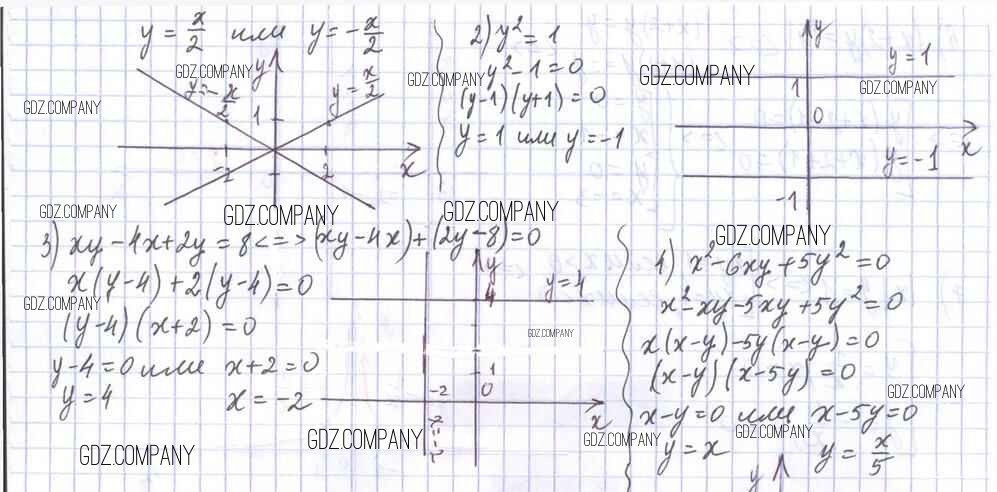 y = x/2 или y = -x/2
y
GDZ.COMPANY
y = -x/2
y = x/2
GDZ.COMPANY
1
2
x
GDZ.COMPANY
GDZ.COMPANY
2) y² = 1
GDZ.COMPANY
y² - 1 = 0
(y-1)(y+1) = 0
y = 1 или y = -1
GDZ.COMPANY
y
y = 1
GDZ.COMPANY
GDZ.COMPANY
1
0
x
y = -1
-1
GDZ.COMPANY
3) xy - 4x + 2y = 8 <=> (xy - 4x) + (2y - 8) = 0
x(y-4) + 2(y-4) = 0
GDZ.COMPANY
(y-4)(x+2) = 0
y-4 = 0 или x+2 = 0
y = 4 x = -2
GDZ.COMPANY
y
4
y = 4
GDZ.COMPANY
1
-2
0
x
GDZ.COMPANY
GDZ.COMPANY
4) x² - 6xy + 5y² = 0
x² - xy - 5xy + 5y² = 0
x(x-y) - 5y(x-y) = 0
(x-y)(x-5y) = 0
GDZ.COMPANY
x-y = 0 или x-5y = 0
GDZ.COMPANY
y = x y = x/5
y